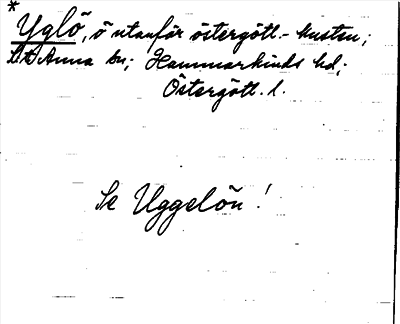 * Yglö, ö utanför östergötl.-kusten;
St Anna sn; Hammarkinds hd;
Östergötl. l.
Se Uggelön!